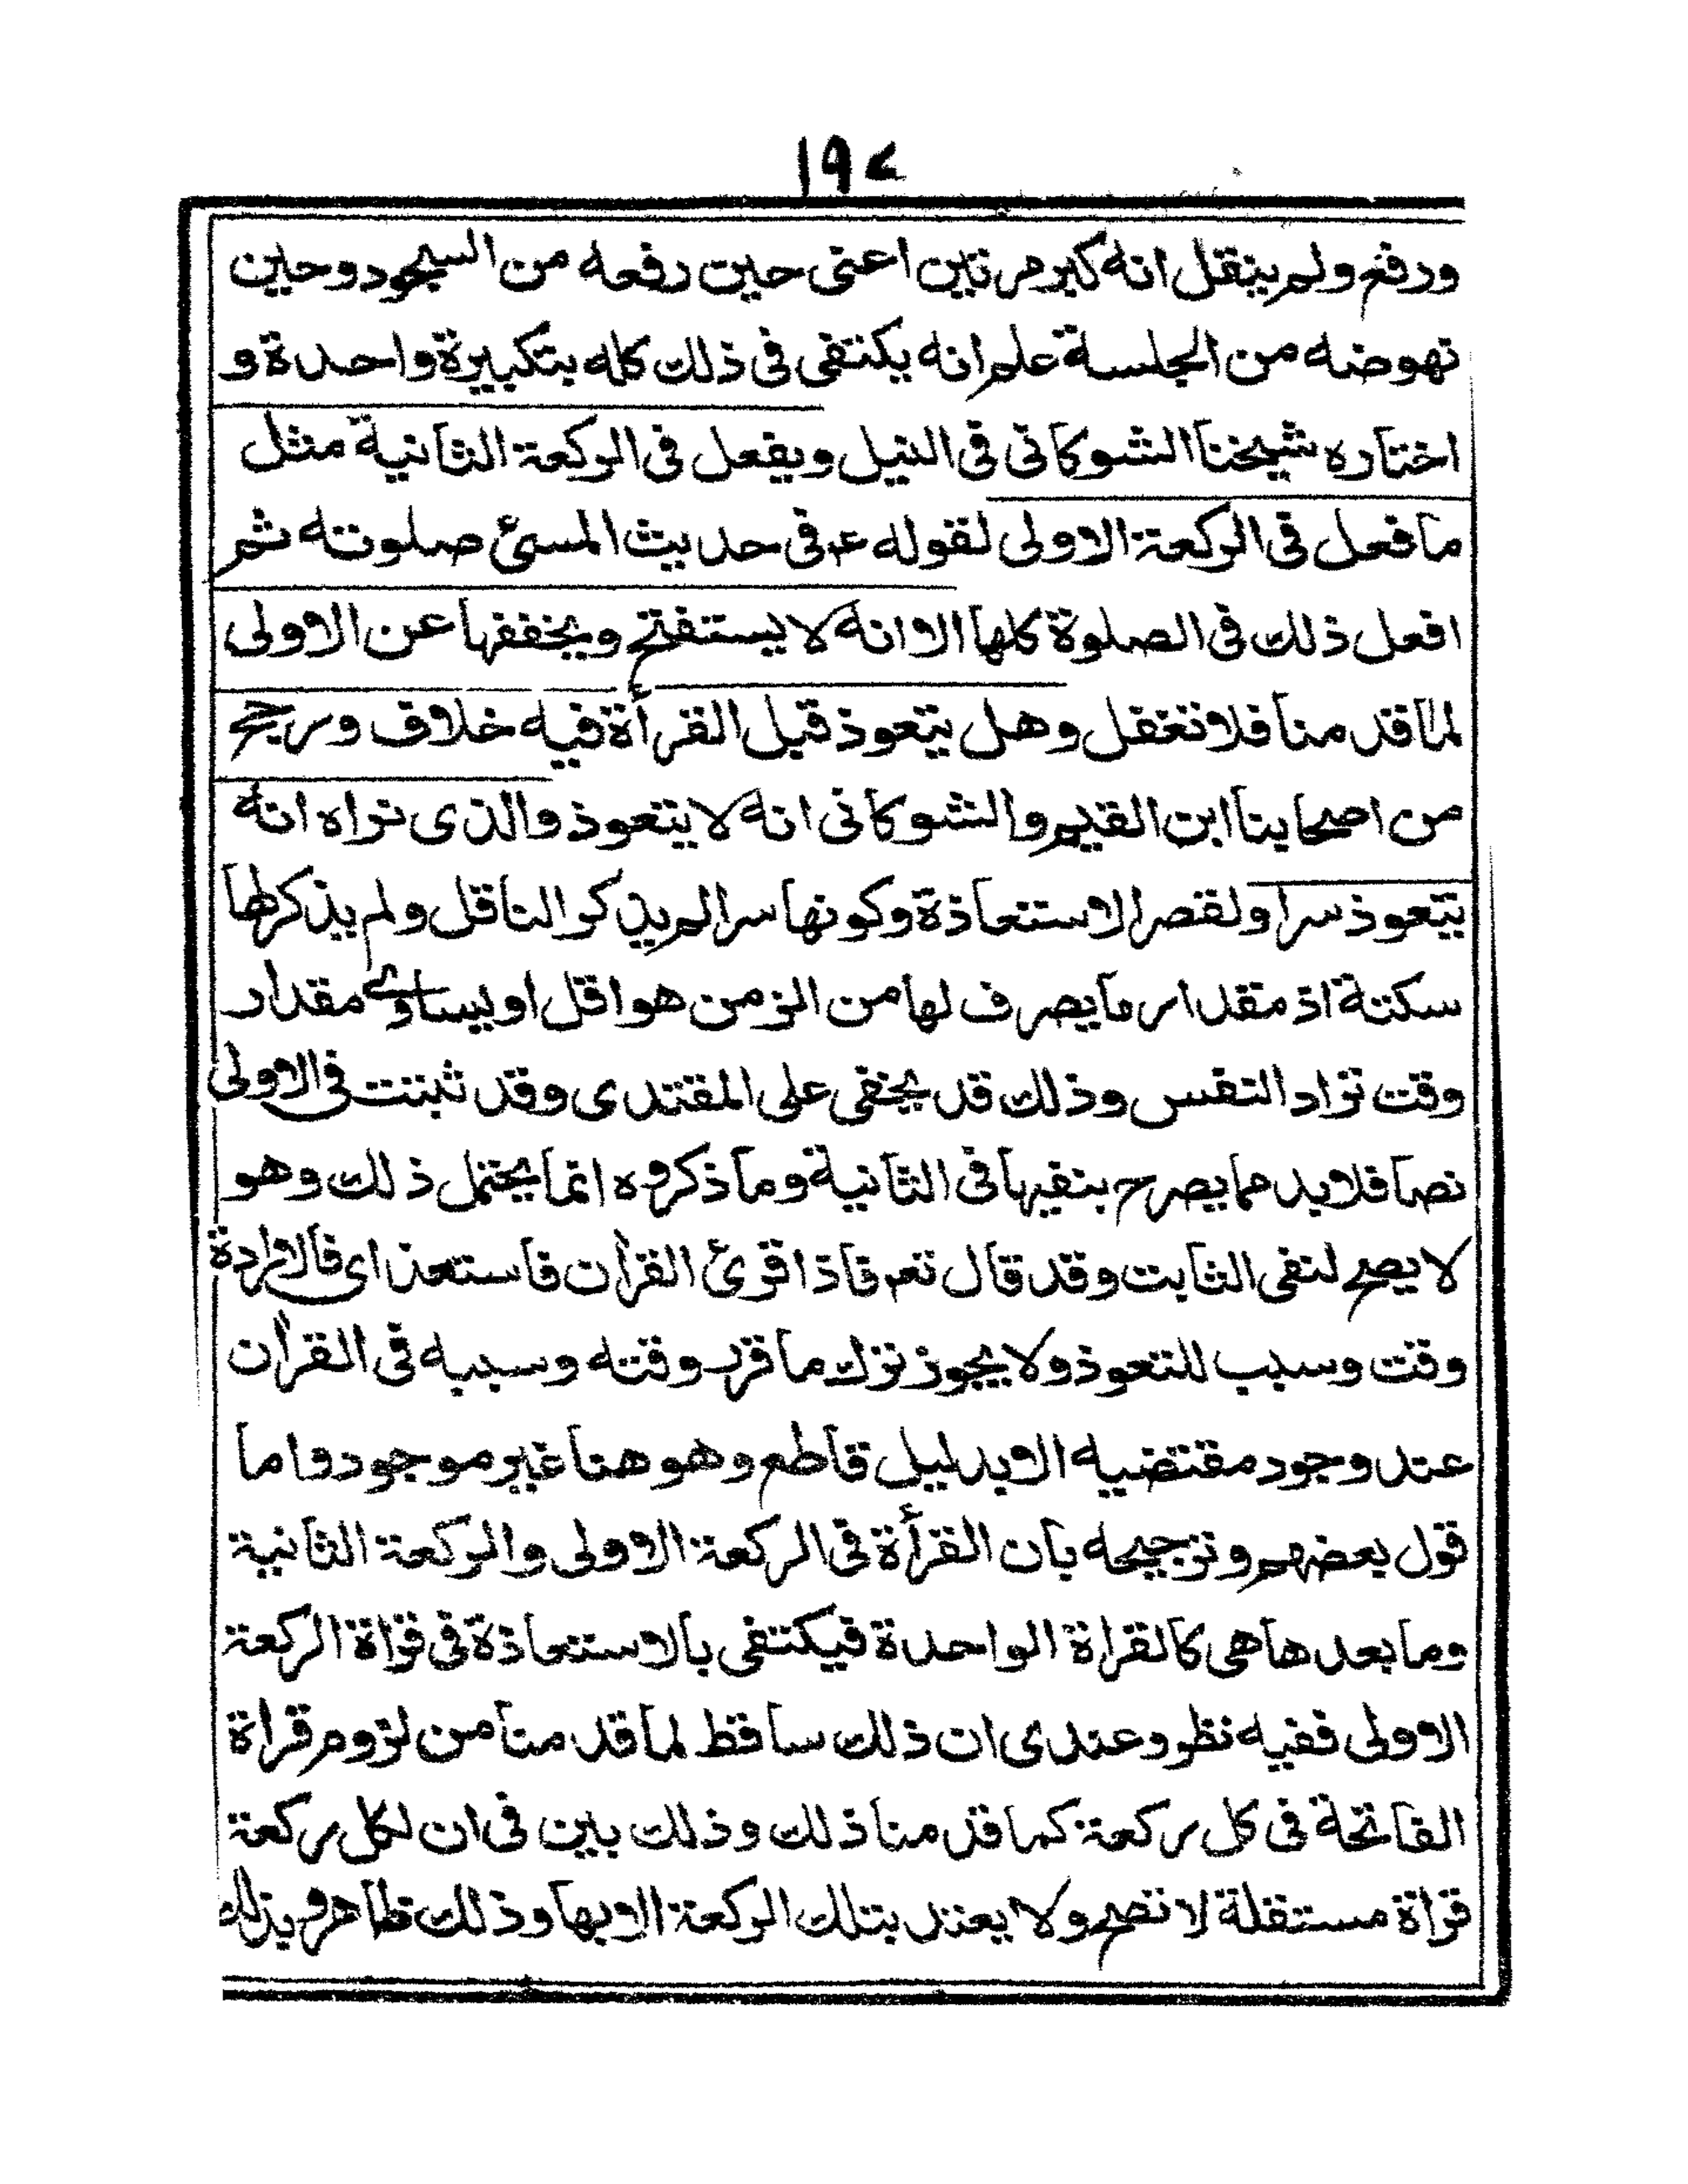 ١٩٧
ورفع ولم ينقل انه كبر مرتين اعنى حين رفعه من السجود وحين
نهوضه من الجلسة علم انه يكتفى فى ذلك كله بتكبيرة واحدة و
اختاره شيخنا الشوكانى فى النيل ويفعل فى الركعة الثانية مثل
ما فعل فى الركعة الاولى لقوله عم فى حديث المسئ صلوته ثم
افعل ذلك فى الصلوة كلها الا انه لا يستفتح ويخففها عن الاولى
لما قد منا فلا تغفل وهل يتعوذ قبل القرأة فيه خلاف ورجح
من اصحابنا ابن القيم والشوكانى انه لا يتعوذ والذى نراه انه
يتعوذ سرا ولقصر الاستعاذة وكونها سرا لم يذكر الناقل ولم يذكر لها
سكتة اذ مقدار ما يصرف لها من الزمن هو اقل او يساوى مقدار
وقت تراد النفس وذلك قد يخفى على المقتدى وقد ثبتت فى الاولى
نصا فلا بد مما يصرح بنفيها فى الثانية وما ذكروه انما يحتمل ذلك وهو
لا يصح لنفى الثابت وقد قال تعم فاذا قرئ القرأن فاستعذ اى فالارادة
وقت وسبب للتعوذ ولا يجوز ترك ما قرر وقته وسببه فى القرأن
عند وجود مقتضيه الا بدليل قاطع وهو هنا غير موجود واما
قول بعضهم وترجيحه بان القرأة فى الركعة الاولى والركعة الثانية
وما بعد ها هى كالقراة الواحدة فيكتفى بالاستعاذة فى قراة الركعة
الاولى ففيه نظر وعندى ان ذلك ساقط لما قد منا من لزوم قراة
الفاتحة فى كل ركعة كما قد منا ذلك وذلك بين فى ان لكل ركعة
قراة مستقلة لا تصح ولا يعتد بتلك الركعة الا بها وذلك ظاهر وبذلك